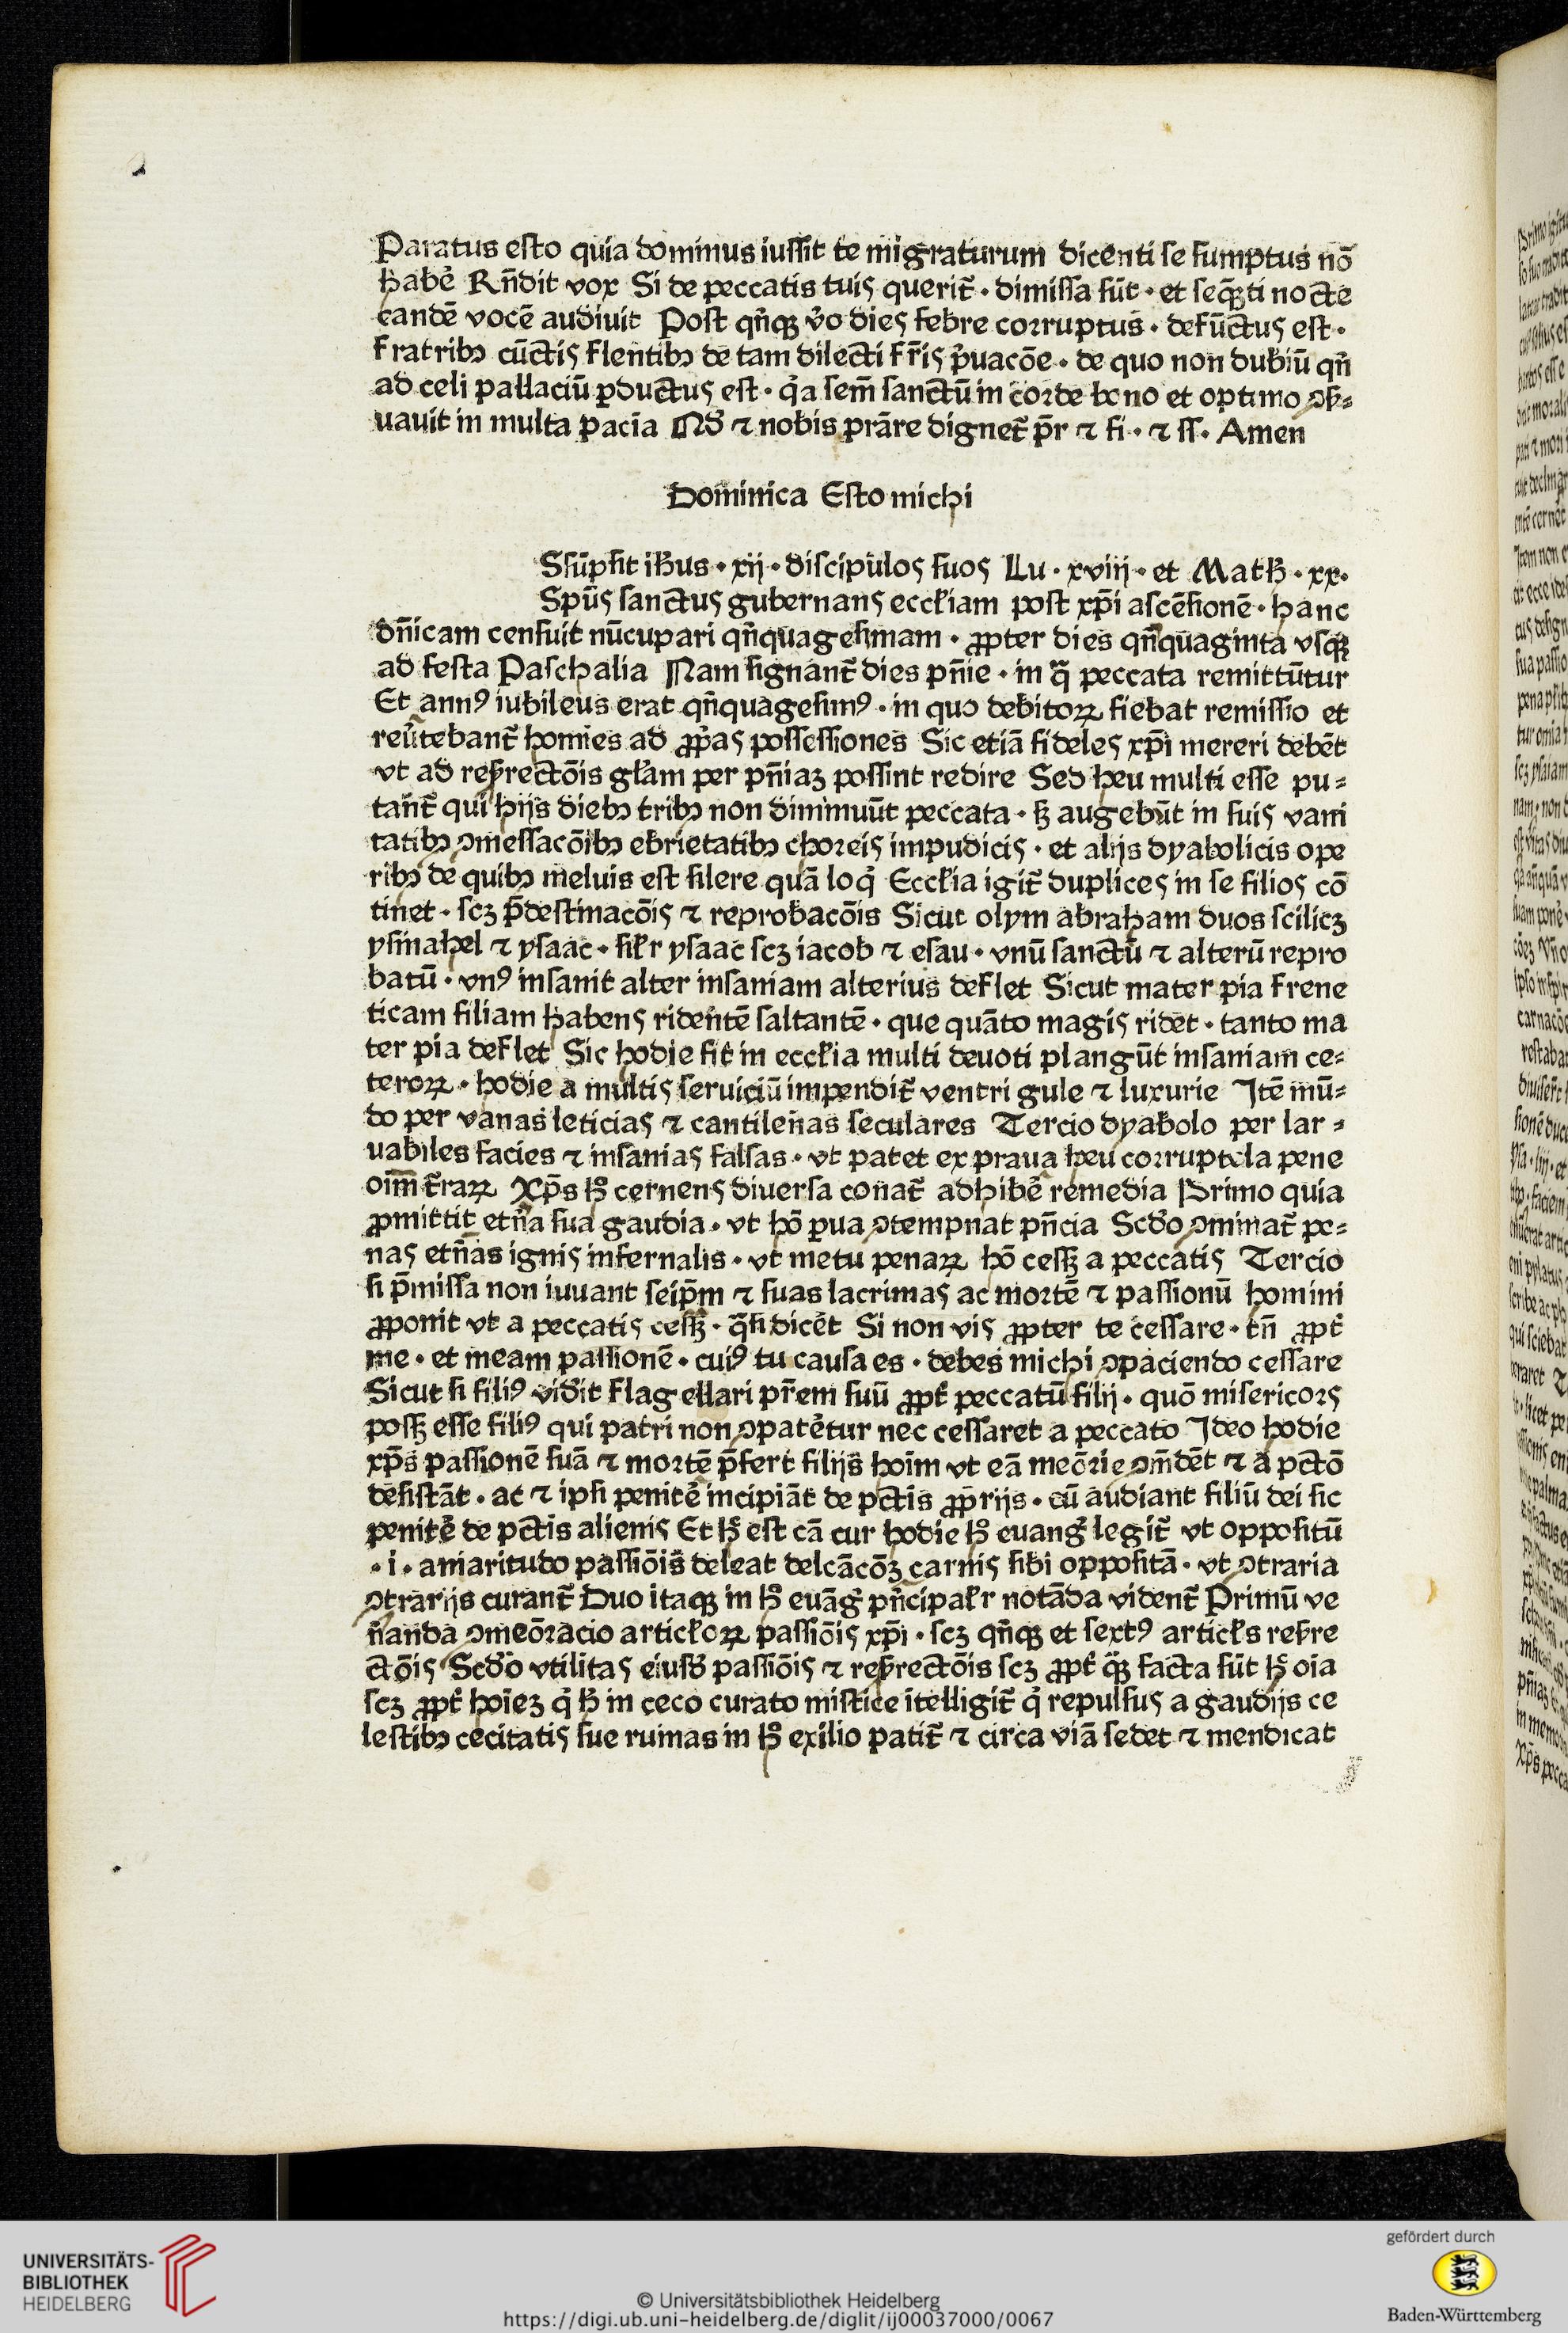 Paratus esto quia dominus iussit te migraturum dicenti se sumptus nō
habē Rn̄dit vox Si de peccatis tuis querit᷑ · dimissa sūt · et seq̄ꝫti nocte
eandē vocē audiuit Post qn̄qꝫ v̓o dies febre corruptus · defūctus est ·
fratribꝫ cūctis flentibꝫ de tam dilecti fr̄is p̓uacōe · de quo non dubiū qn̄
ad celi pallaciū ꝑductus est · q̓a sem̄ sanctū in corde bono et optimo ꝯẜ⸗
uauit in multa pacia Qd̓ ⁊ nobis prāre dignet᷑ pr̄ ⁊ fi · ⁊ ſſ · Amen
Dominica Esto michi
Ssūpsit ih̄us · xij · discipulos suos Lu · xviij · et Math̄ · xx ·
Spūs sanctus gubernans eccłiam post xp̄i ascēsionē · hanc
dn̄icam censuit nūcupari qn̄quagesimam · ꝓpter dies qn̄quaginta vsqꝫ
ad festa Paschalia Nam signant᷑ dies pn̄ie · in q̄ peccata remittūtur
Et annꝰ iubileus erat qn̄quagesimꝰ · in quo debitoꝝ fiebat remissio et
reu̓tebant᷑ homīes ad ꝓp̓as possessiones Sic etiā fideles xp̄i mereri debēt
vt ad resr̄rectōis gl̓am per pn̄iaꝫ possint redire Sed heu multi esse pu⸗
tant᷑ qui hijs diebꝫ tribꝫ non diminuūt peccata · sꝫ augebūt in suis vani
tatibꝫ ꝯmessacōibꝫ ebrietatibꝫ choreis impudicis · et alijs dyabolicis ope
ribꝫ de quibꝫ meluis est silere quā loq̓ Eccłia igit᷑ duplices in se filios cō
tinet · scꝫ p̄destinacōis ⁊ reprobacōis Sicut olym abraham duos scilicꝫ
ysmahel ⁊ ysaac · sił̓r ysaac scꝫ iacob ⁊ esau · vnū sanctū ⁊ alterū repro
batū · vnꝰ insanit alter insaniam alterius deflet Sicut mater pia frene
ticam filiam habens ridentē saltantē · que quāto magis ridet · tanto ma
ter pia deflet Sic hodie fit in eccłia multi deuoti plangūt insaniam ce⸗
teroꝝ · hodie a multis seruiciū impendit᷑ ventri gule ⁊ luxurie Itē mū⸗
do per vanas leticias ⁊ cantilenas seculares Tercio dyabolo per lar⸗
uabiles facies ⁊ insanias falsas · vt patet ex praua heu corruptela pene
oim̄ t̄raꝝ Xp̄s h̊ cernens diuersa conat᷑ adhibē remedia Primo quia
ꝓmittit et̄na sua gaudia · vt hō ꝑua ꝯtempnat pn̄cia Scd̓o ꝯminat᷑ pe⸗
nas et̄nas ignis infernalis · vt metu penaꝝ hō cessꝫ a peccatis Tercio
si p̄missa non iuuant seip̄m ⁊ suas lacrimas ac mortē ⁊ passionū homini
ꝓponit vt a peccatis cessꝫ · q̄si dicēt Si non vis ꝓpter te cessare · tn̄ ꝓpt̓
me · et meam passionē · cuiꝰ tu causa es · debes michi ꝯpaciendo cessare
Sicut si filiꝰ vidit flagellari pr̄em suū ꝓpt̓ peccatū filij · quō misericors
possꝫ esse filiꝰ qui patri non ꝯpatēt̓ur nec cessaret a peccato Ideo hodie
xp̄s passionē suā ⁊ mortē p̄fert filijs hoīm vt eā meōrie ꝯm̄dēt ⁊ a pctō
desistāt · ac ⁊ ipsi penitē incipiāt de pctis ꝓprijs · cū audiant filiū dei sic
penitē de pctis alienis Et h̊ est cā cur hodie h̊ euang̓ legit᷑ vt oppositū
· i · amaritudo passiōis deleat delcācōꝫ carnis sibi oppositā · vt ꝯtraria
ꝯtrarijs curant᷑ Duo itaqꝫ in h̊ euāg̓ pn̄cipał̓r notāda vident᷑ Primū ve
n̄anda ꝯmeōracio articłoꝝ passiōis xp̄i · scꝫ qn̄qꝫ et sextꝰ articłs resr̄re
ctōis Scd̓o vtilitas eiusd̓ passiōis ⁊ resr̄rectōis scꝫ ꝓpt̓ q̄ꝫ facta sūt h̊ oia
scꝫ ꝓpt̓ hoīeꝫ q̓ h̓ in ceco curato mistice itelligit᷑ q̓ repulsus a gaudijs ce
lestibꝫ cecitatis sue ruinas in h̊ exilio patit᷑ ⁊ circa viā sedet ⁊ mendicat
UNIVERSITÄTS-
BIBLIOTHEK
HEIDELBERG
© Universitätsbibliothek Heidelberg
https://digi.ub.uni-heidelberg.de/diglit/ij00037000/0067
gefördert durch
Baden-Württemberg